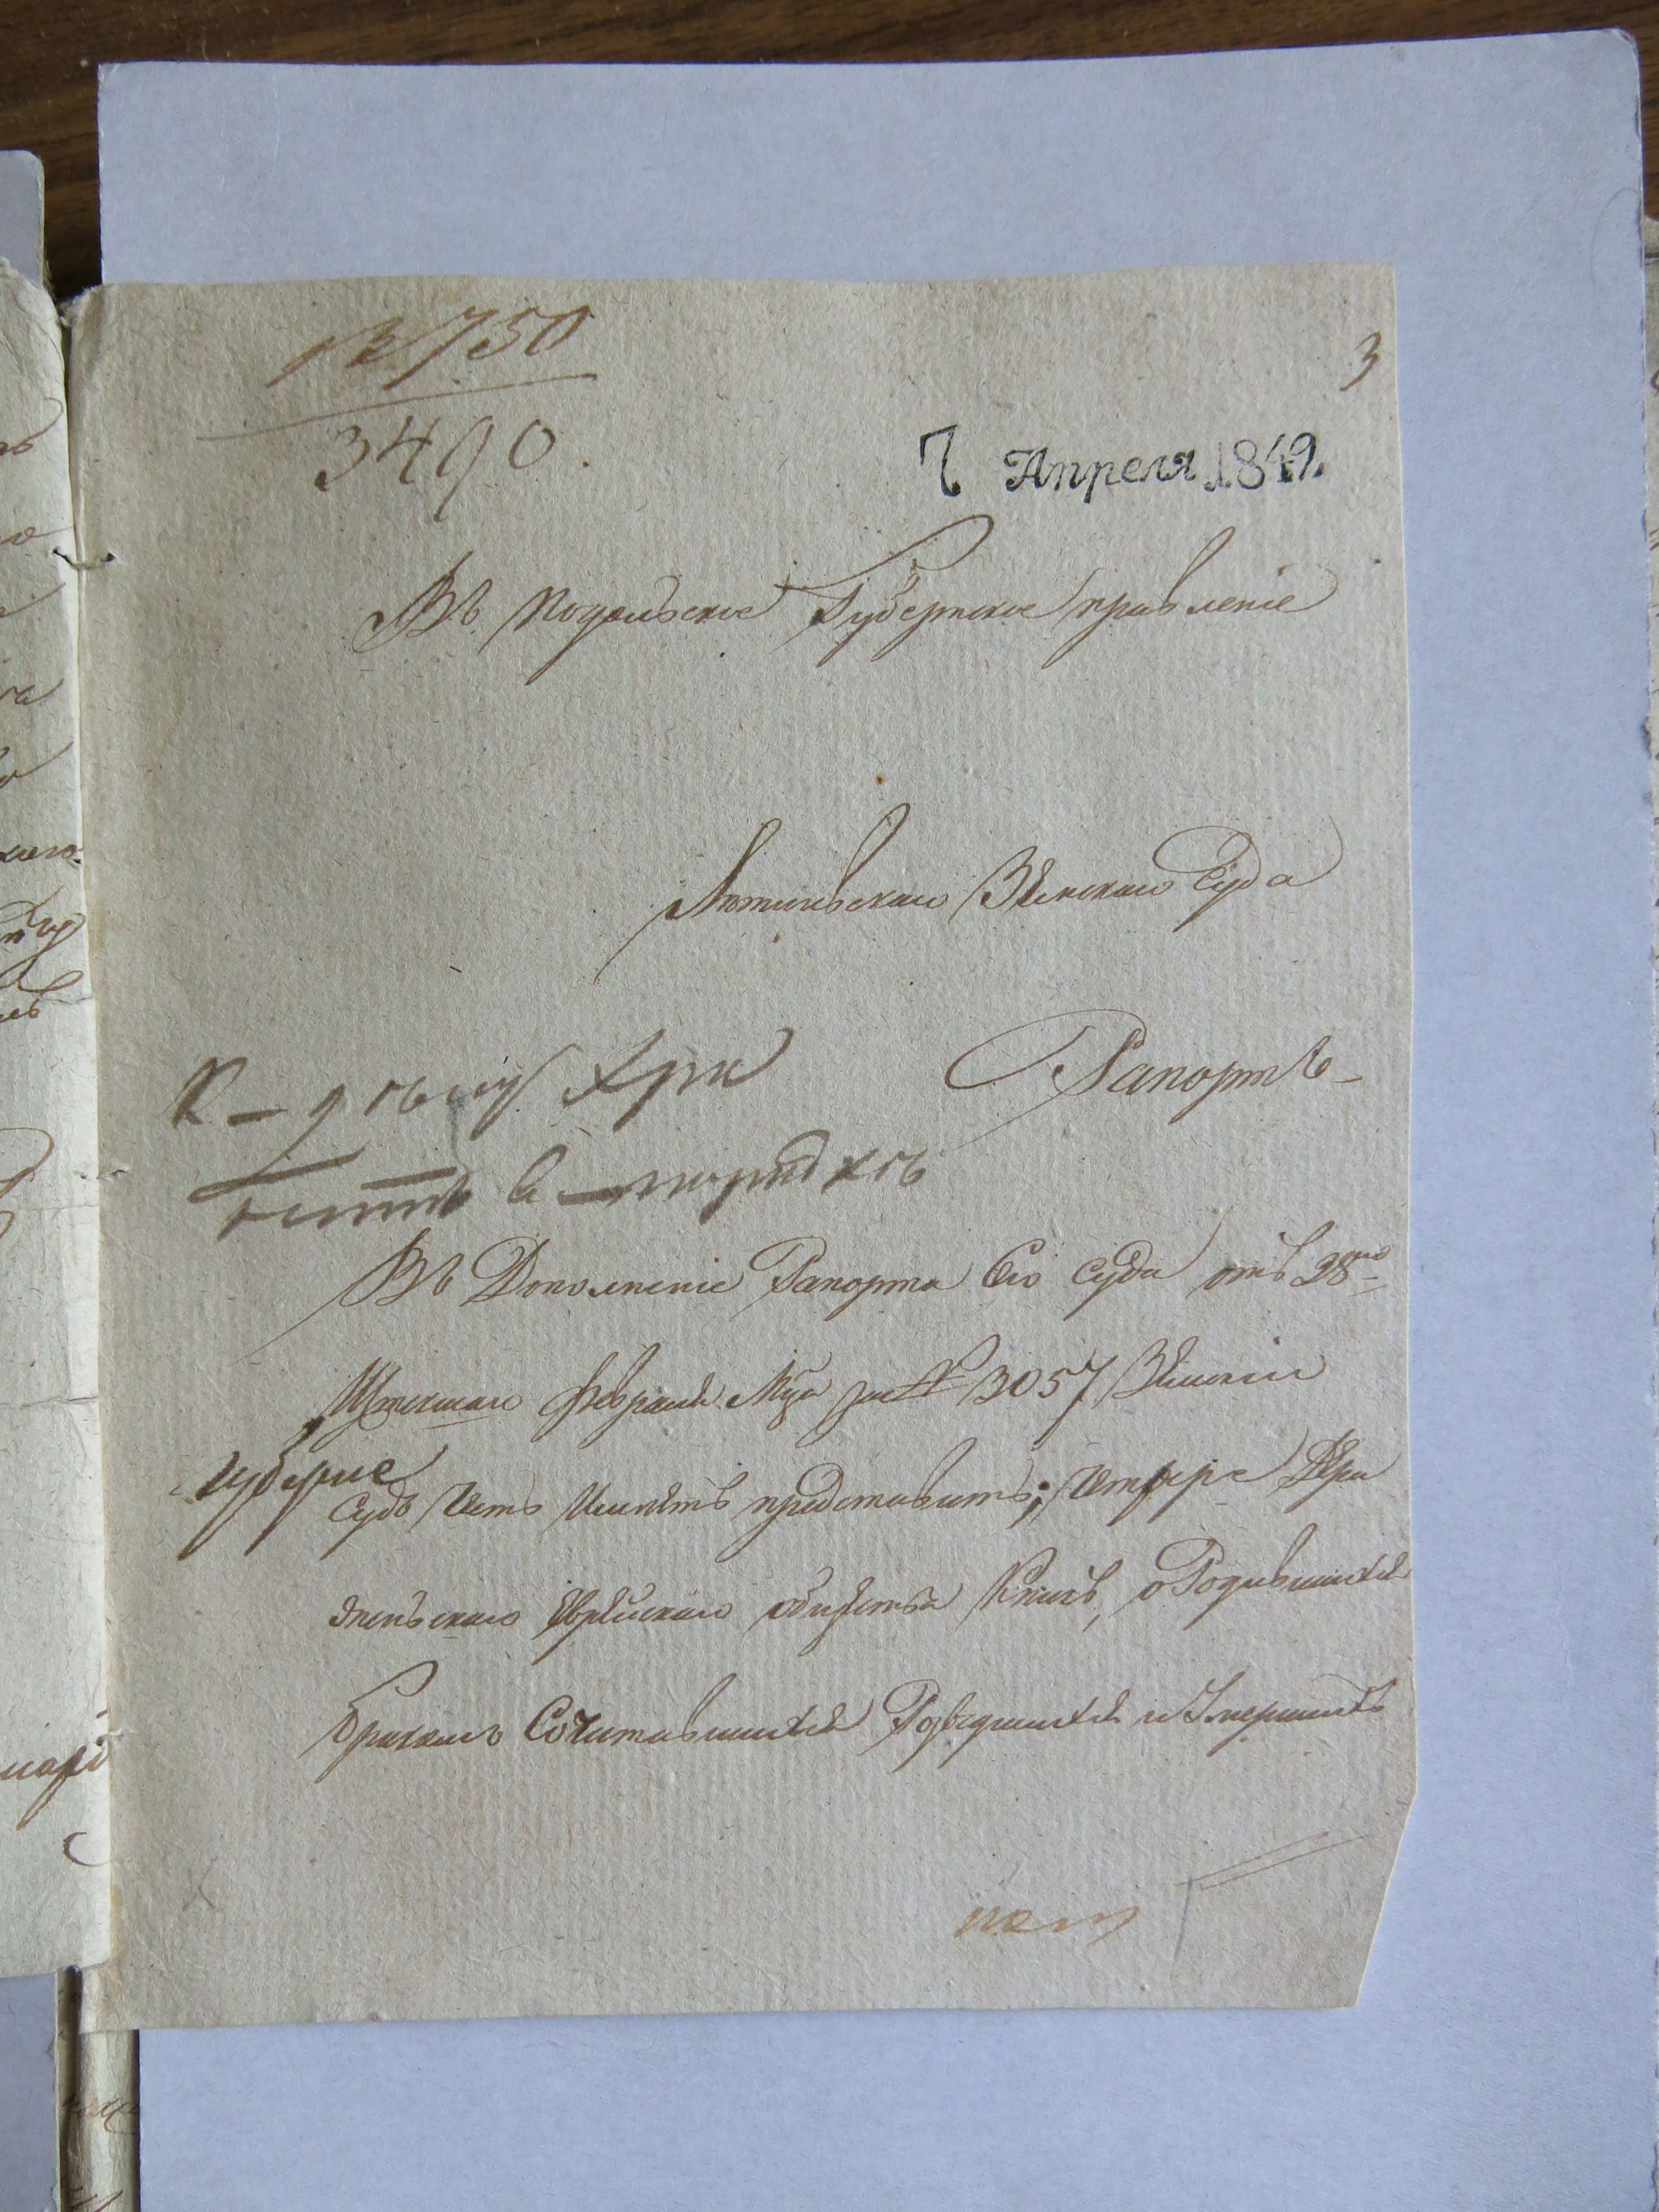 12750
3490.
3
7 Апреля 1849.
Въ Подольское Губернское правленіе
Летичевскаго Земскаго Суда
Рапортъ
К дѣлу
въ порядкѣ
Въ Дополненіе Рапорта Сего Суда отъ 28го
Истекшаго февраля Мца за № 3057 Земскій
Судъ Честь Имѣетъ представить; Четыре Дера
жнянскаго Еврейскаго общества Книгъ, о Родившихся
Бракомъ Сочитавшихся Разведшихся и Умершихъ